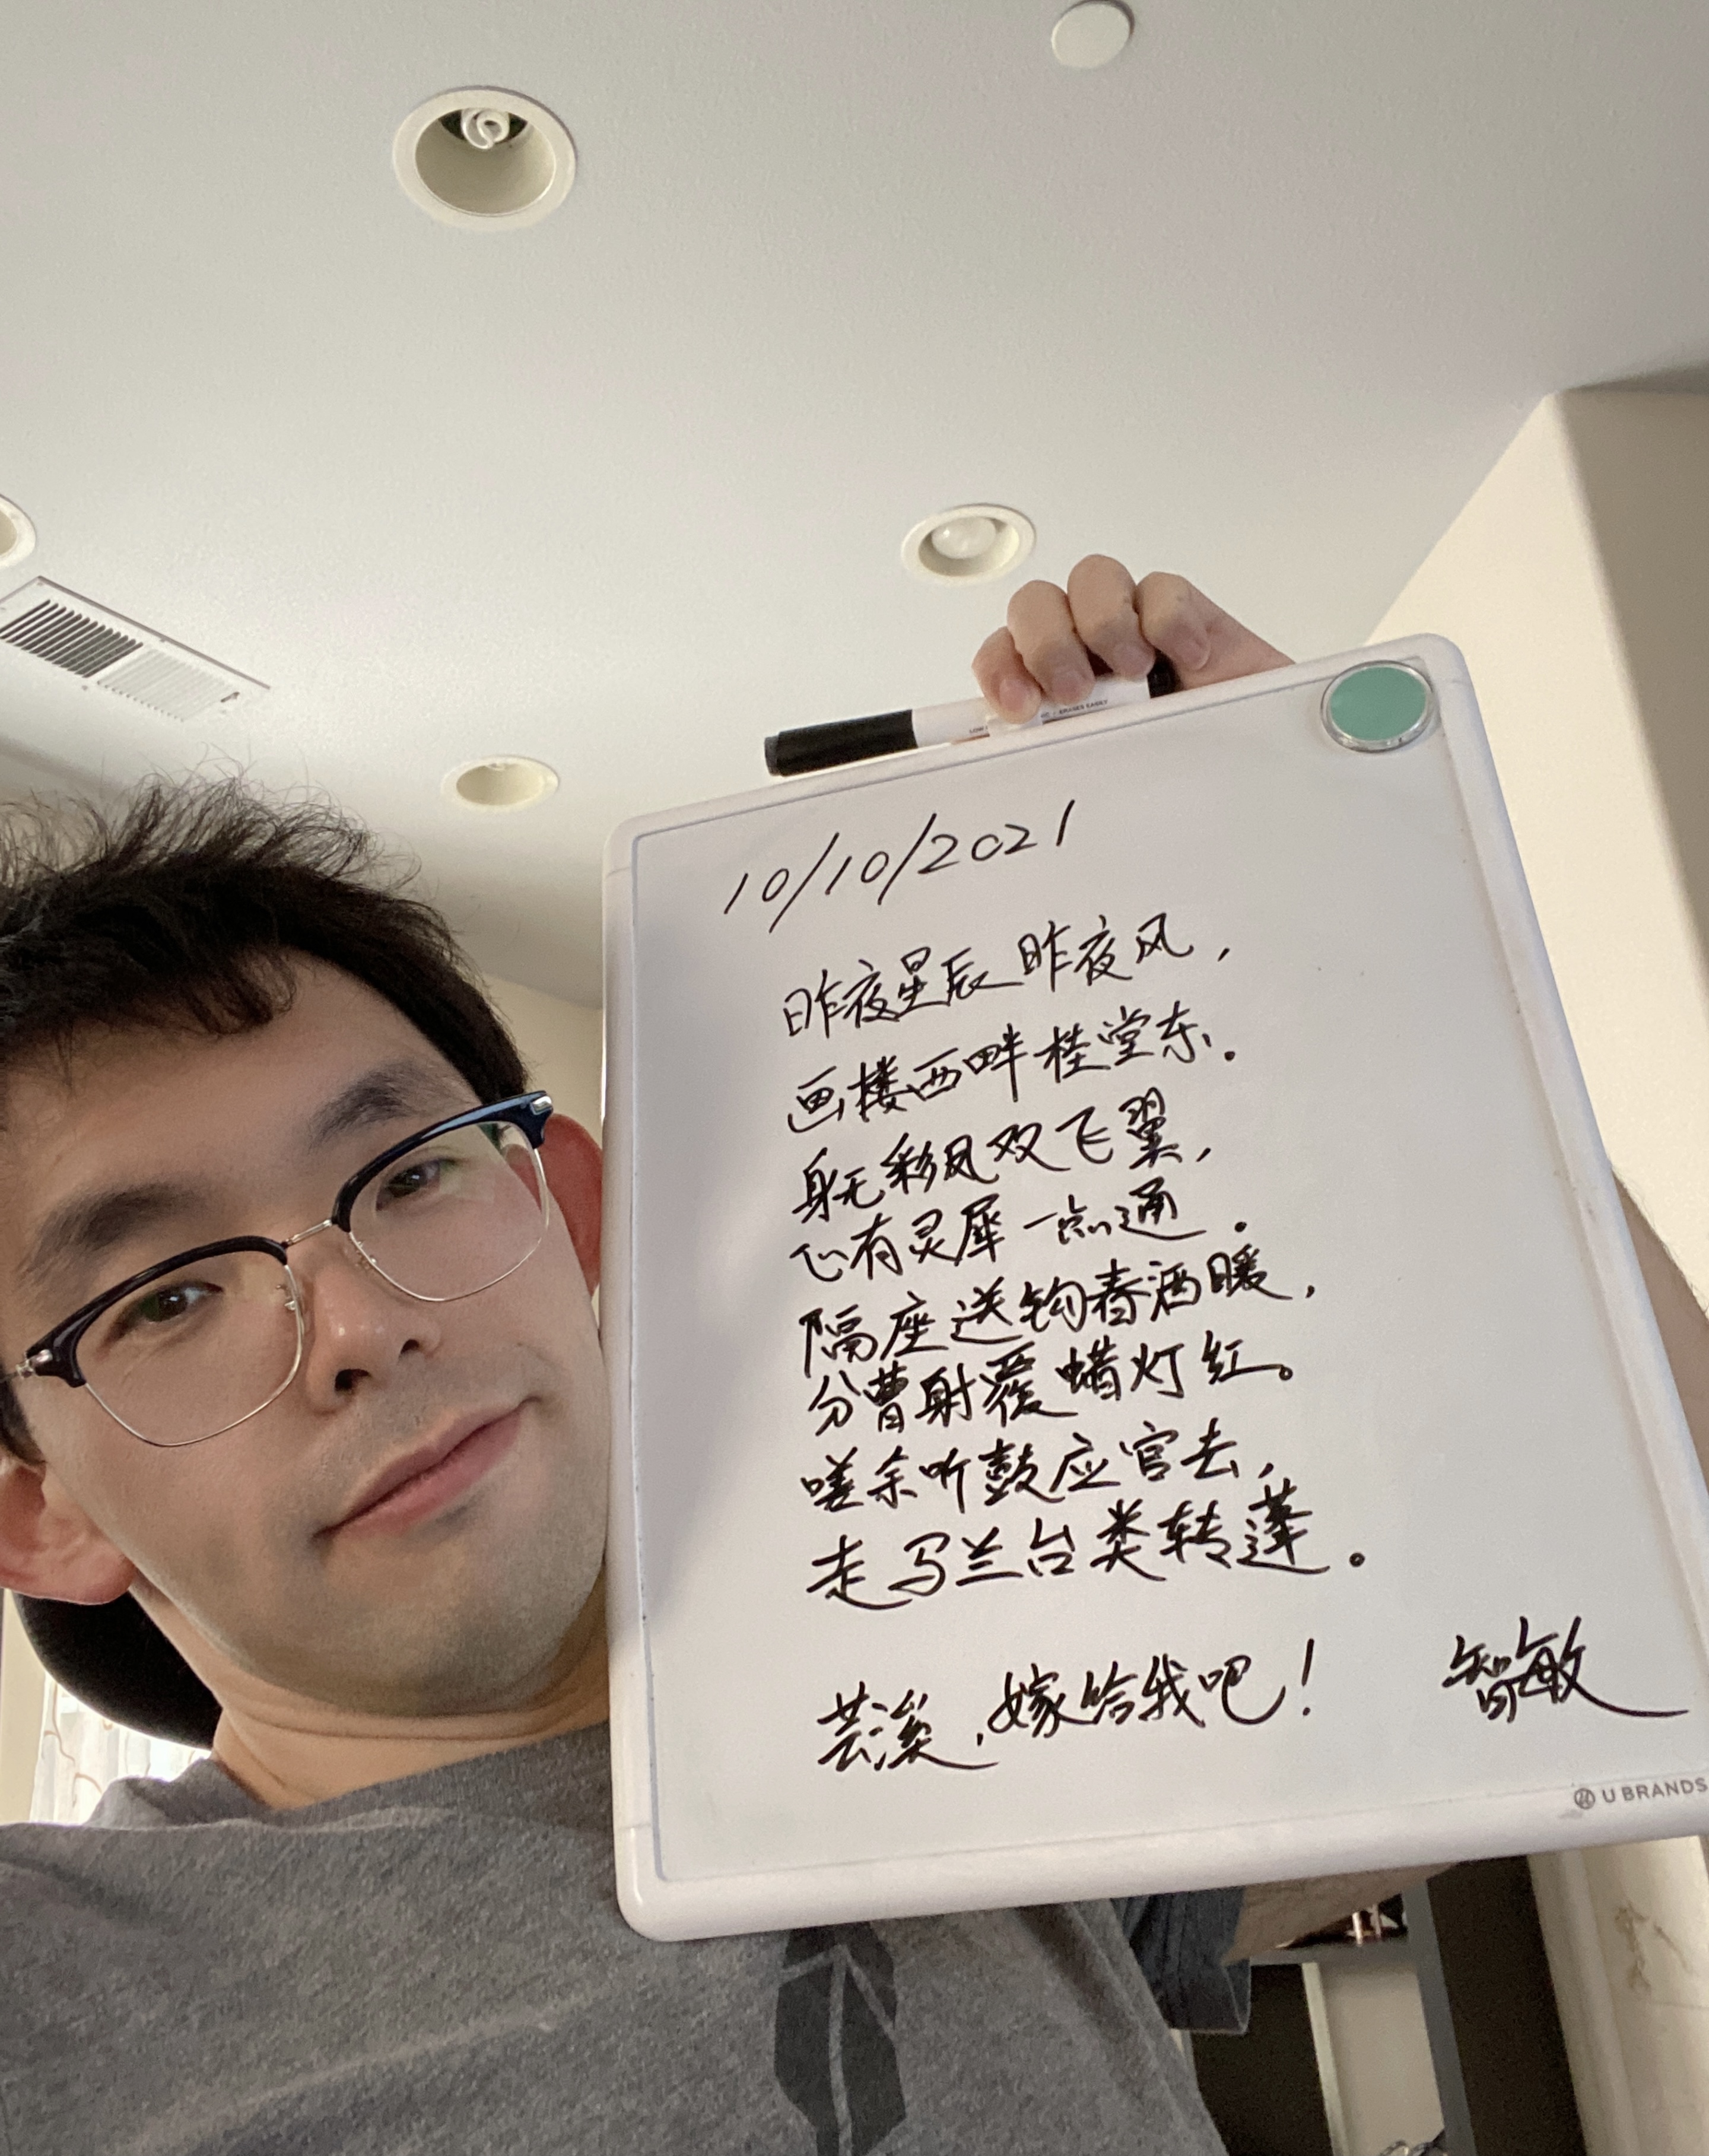 10/10/2021
昨夜星辰昨夜风,
画楼西畔桂堂东。
身无彩凤双飞翼,
心有灵犀一点通。
隔座送钩春酒暖,
分曹射覆蜡灯红。
嗟余听鼓应官去,
走马兰台类转蓬。
芸溪,嫁给我吧! 智敏
U BRANDS